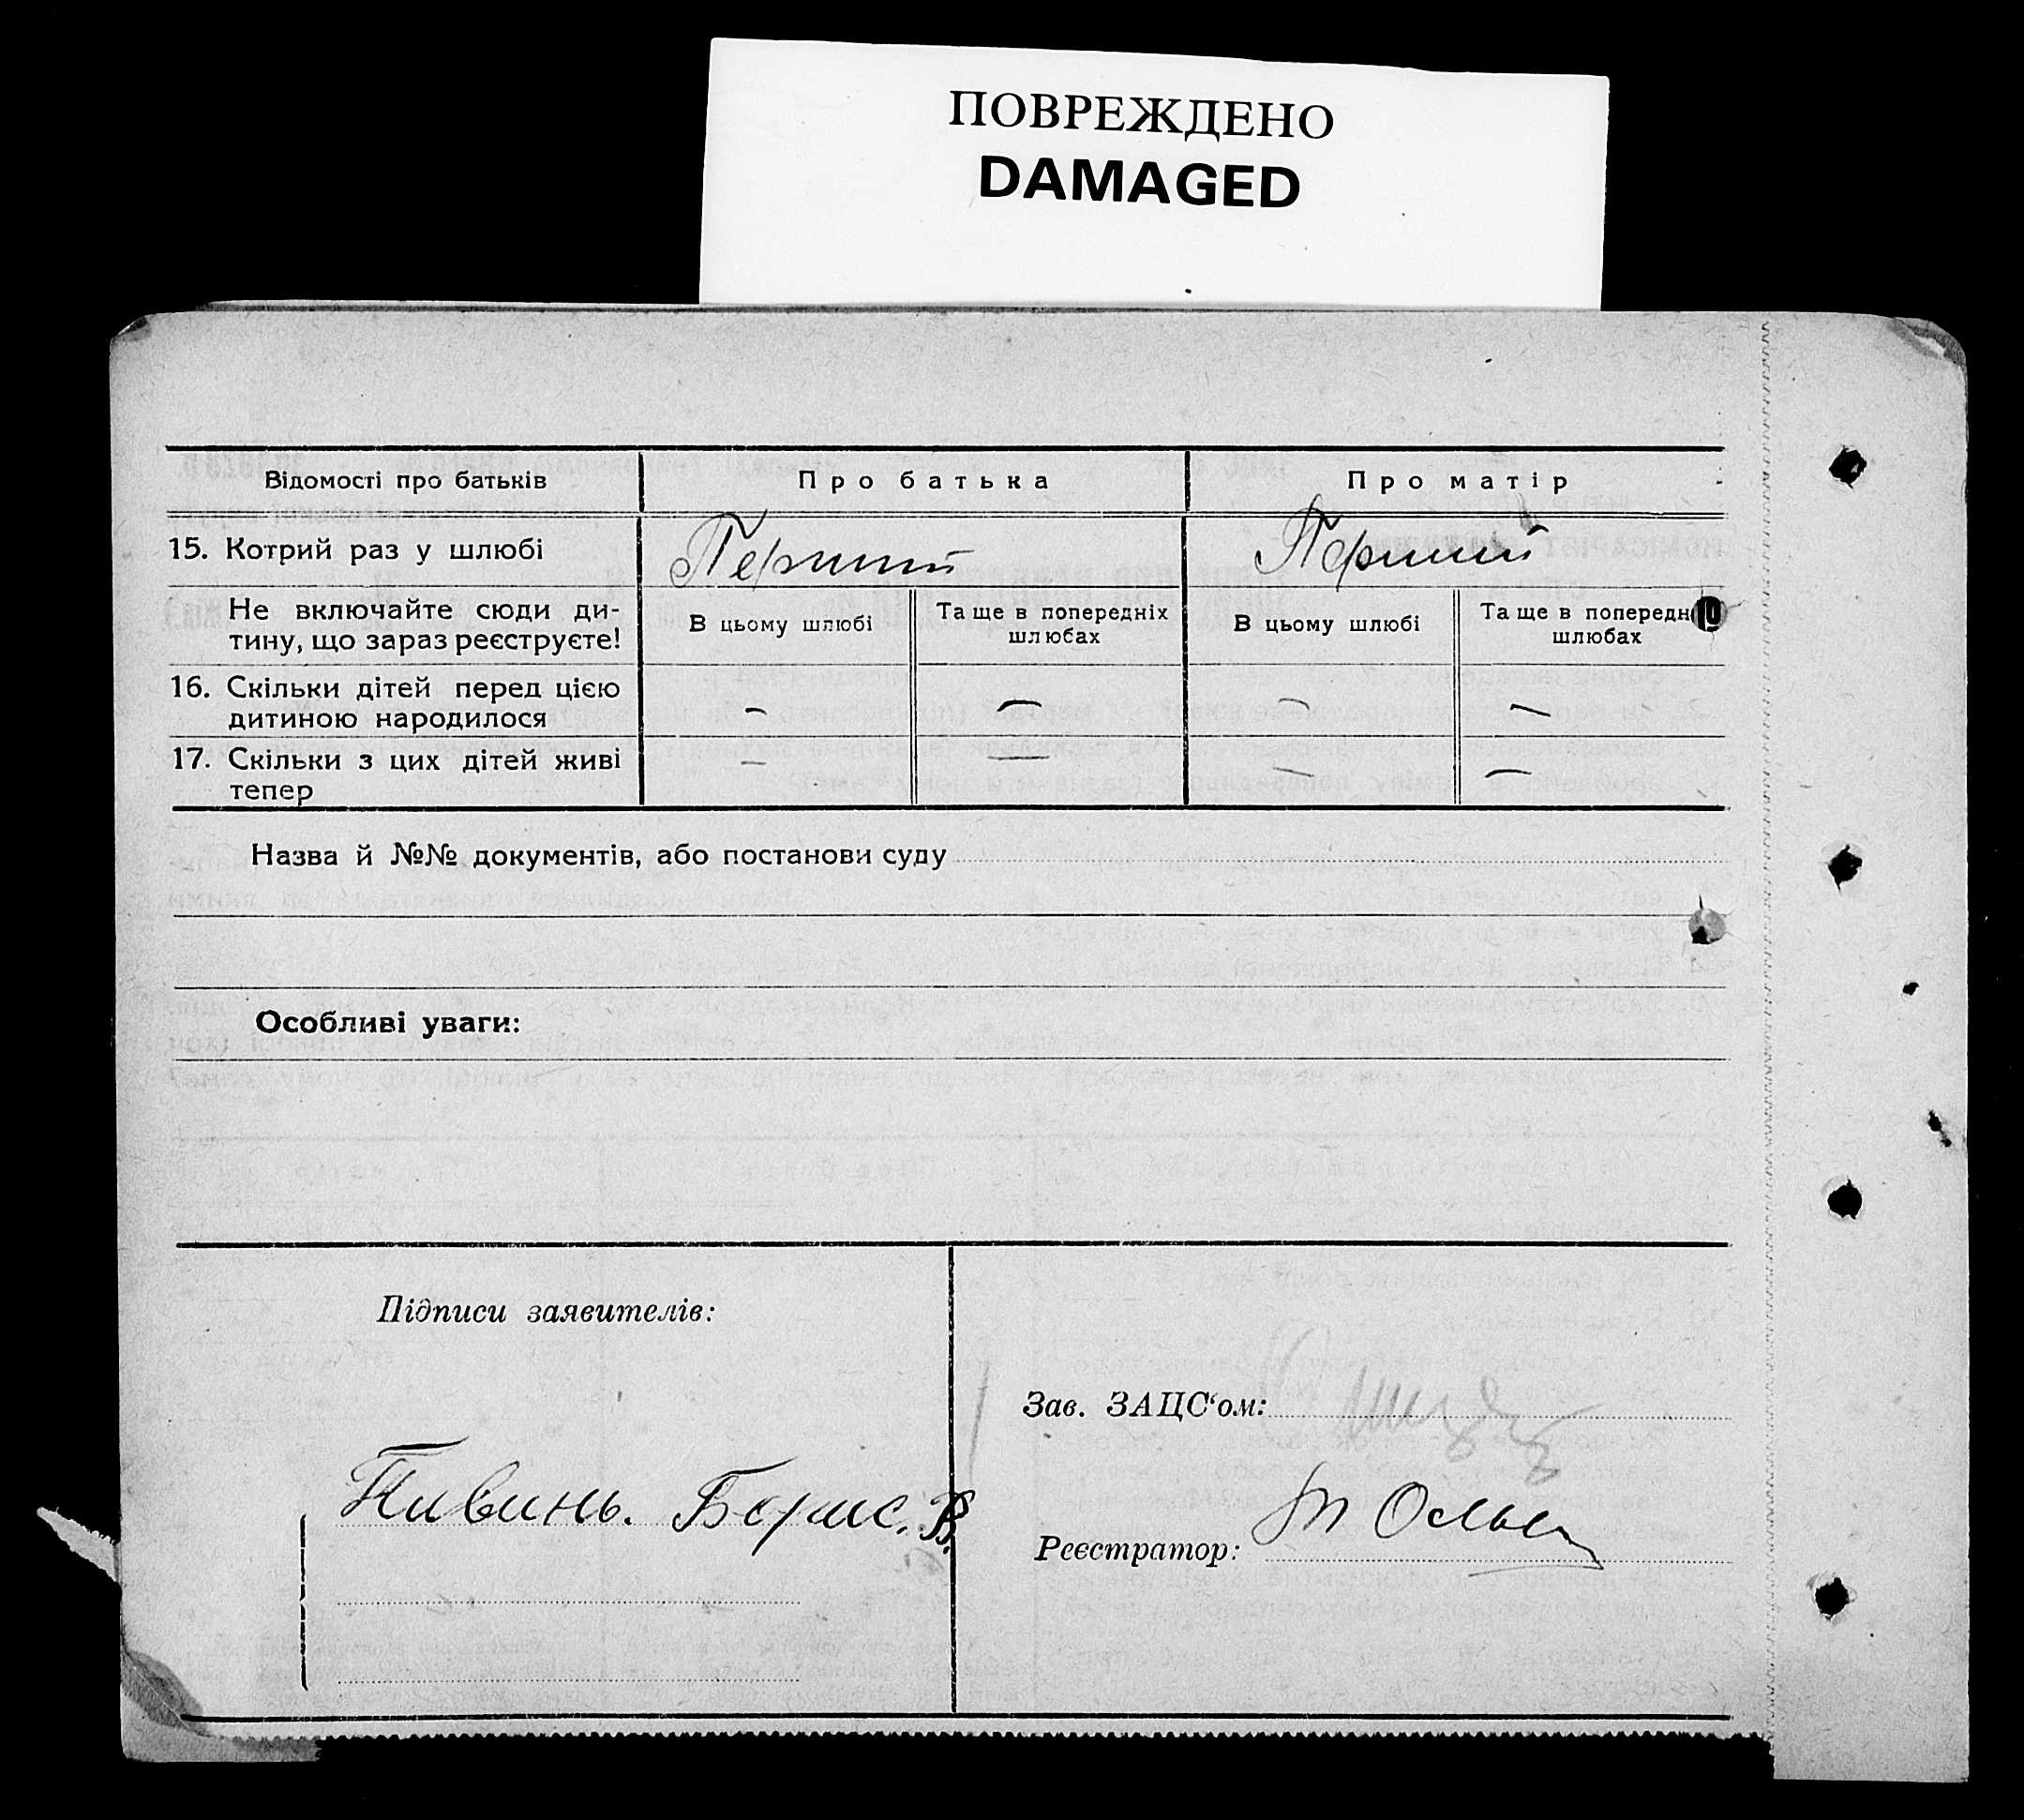 ПОВРЕЖДЕНО
DAMAGED
Відомості про батьків Про батька Про матір
15. Котрий раз у шлюбі Перший Перший
Не включайте сюди ди-
тину, що зараз реєструєте!
В цьому шлюбі
Та ще в попередніх
шлюбах
В цьому шлюбі
Та ще в попередн
шлюбах
16. Скільки дітей перед цією
дитиною народилося — — — —
17. Скільки з цих дітей живі
тепер — — — —
Назва й №№ документів, або постанови суду
Особливі уваги:
Підписи заявителів:
Пивинь. Борис. В.
Зав. ЗАЦС‘ом:
Реєстратор: